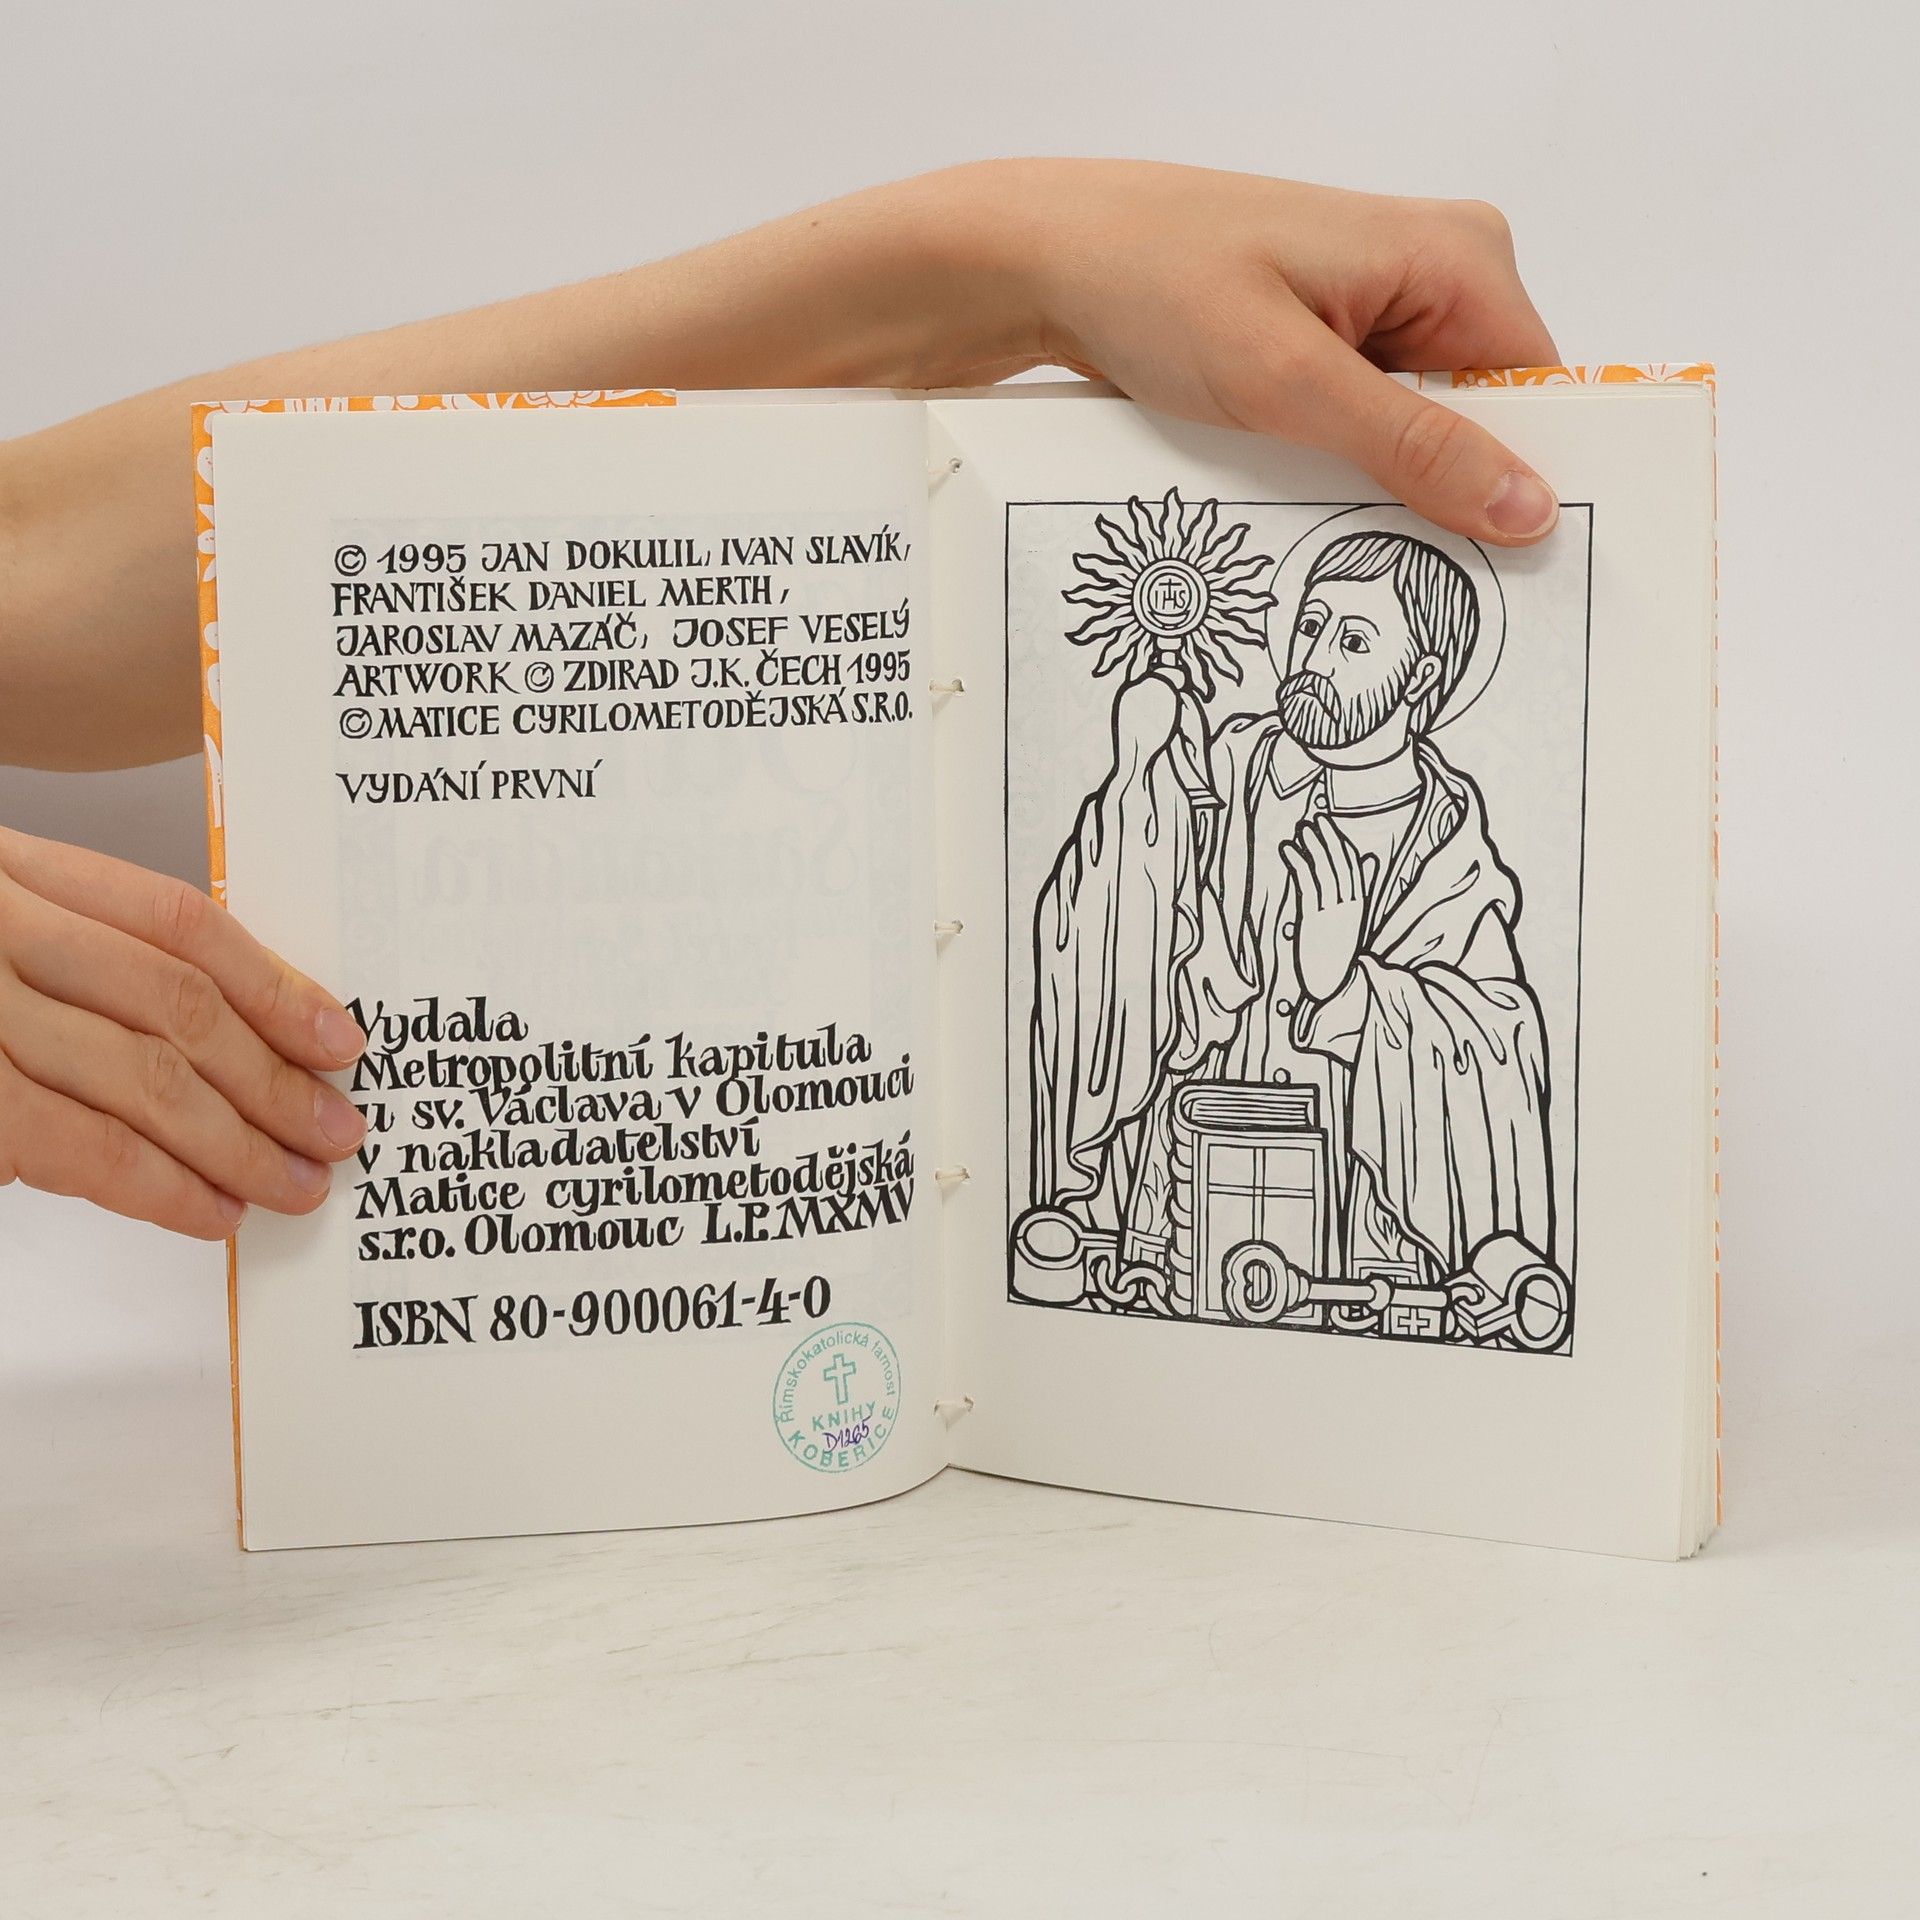 © 1995 JAN DOKULIL, IVAN SLAVÍK,
FRANTIŠEK DANIEL MERTH,
JAROSLAV MAZÁČ, JOSEF VESELÝ
ARTWORK © ZDIRAD J.K. ČECH 1995
© MATICE CYRILOMETODĚJSKÁ S.R.O.
VYDÁNÍ PRVNÍ
Vydala
Metropolitní kapitula
u sv. Václava v Olomouci
v nakladatelství
Matice cyrilometodějská
s.r.o. Olomouc L.P. MXMV
ISBN 80-900061-4-0
Římskokatolická farnost
KNIHY
D1265
KOBEŘICE
IHS